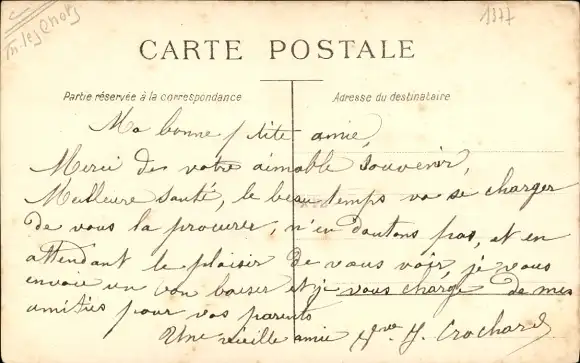 1377
CARTE POSTALE
Partie réservée à la correspondance
Adresse du destinataire
Ma bonne p'tite amie,
Merci de votre aimable souvenir,
Meilleure santé, le beau temps va se charger
de vous la procurer, n'en doutons pas, et en
attendant le plaisir de vous voir, je vous
envoie un bon baiser et je vous charge de mes
amitiés pour vos parents
Une vieille amie Crochard